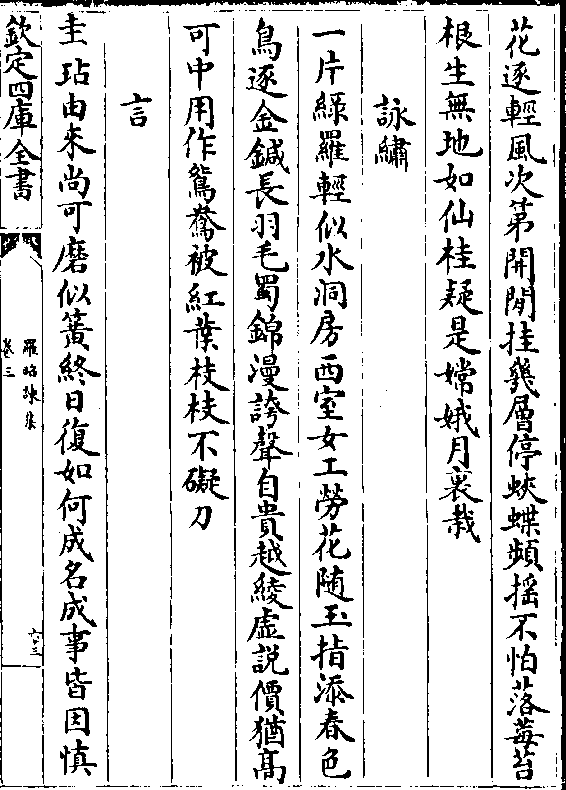 花逐輕風次第開閒挂幾層停蛺蝶頻摇不怕落莓苔
根生無地如仙桂疑是嫦娥月裏栽
詠繡
一片綠羅輕似水洞房西室女工勞花隨玉指添春色
鳥逐金鍼長羽毛蜀錦漫誇聲自貴越綾虛説價猶髙
可中用作鴛鴦被紅葉枝枝不礙刀
言
圭玷由來尚可磨似簧終日復如何成名成事皆因慎
欽定四庫全書
羅昭諫集
卷三
六三